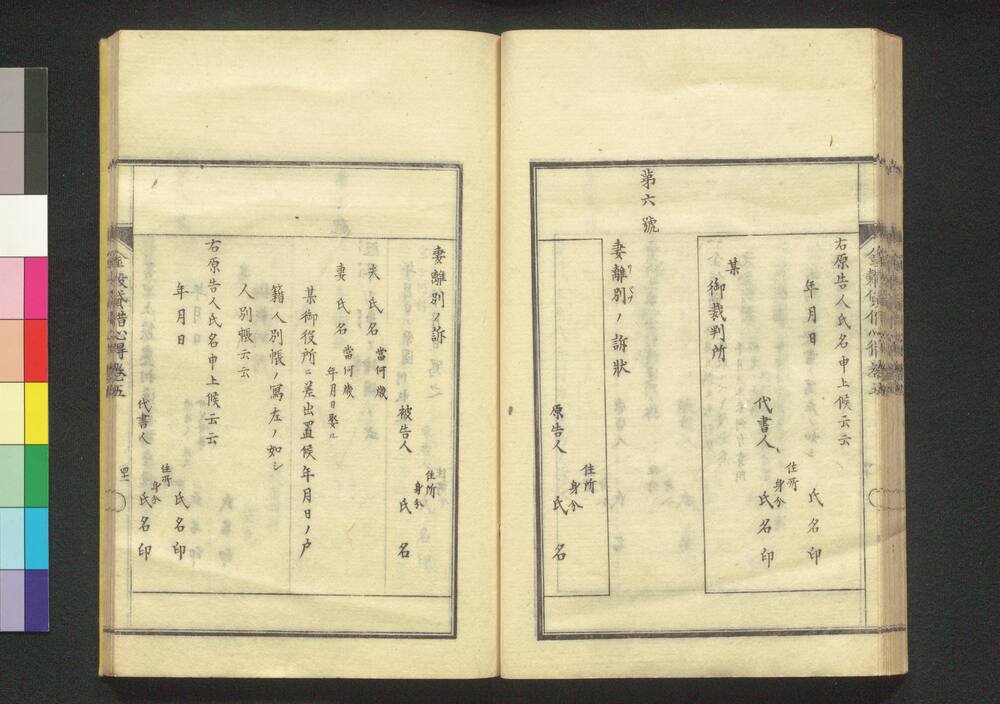 右原告人氏名申上候云云
年月日
氏名印
代書人
住所
身分
氏名印
某
御裁判所
第六號
妻離別ノ訴狀
原告人
住所
身分
氏名
妻離別ノ訴
被告人
住所
身分
氏名
夫氏名
當何歲
妻氏名
當何歲
年月日娶ル
某御役所ニ差出置候年月日ノ户
籍人別帳ノ寫左ノ如シ
人別帳云云
右原告人氏名申上候云云
年月日
氏名印
代書人
住所
身分
氏名印
四十二